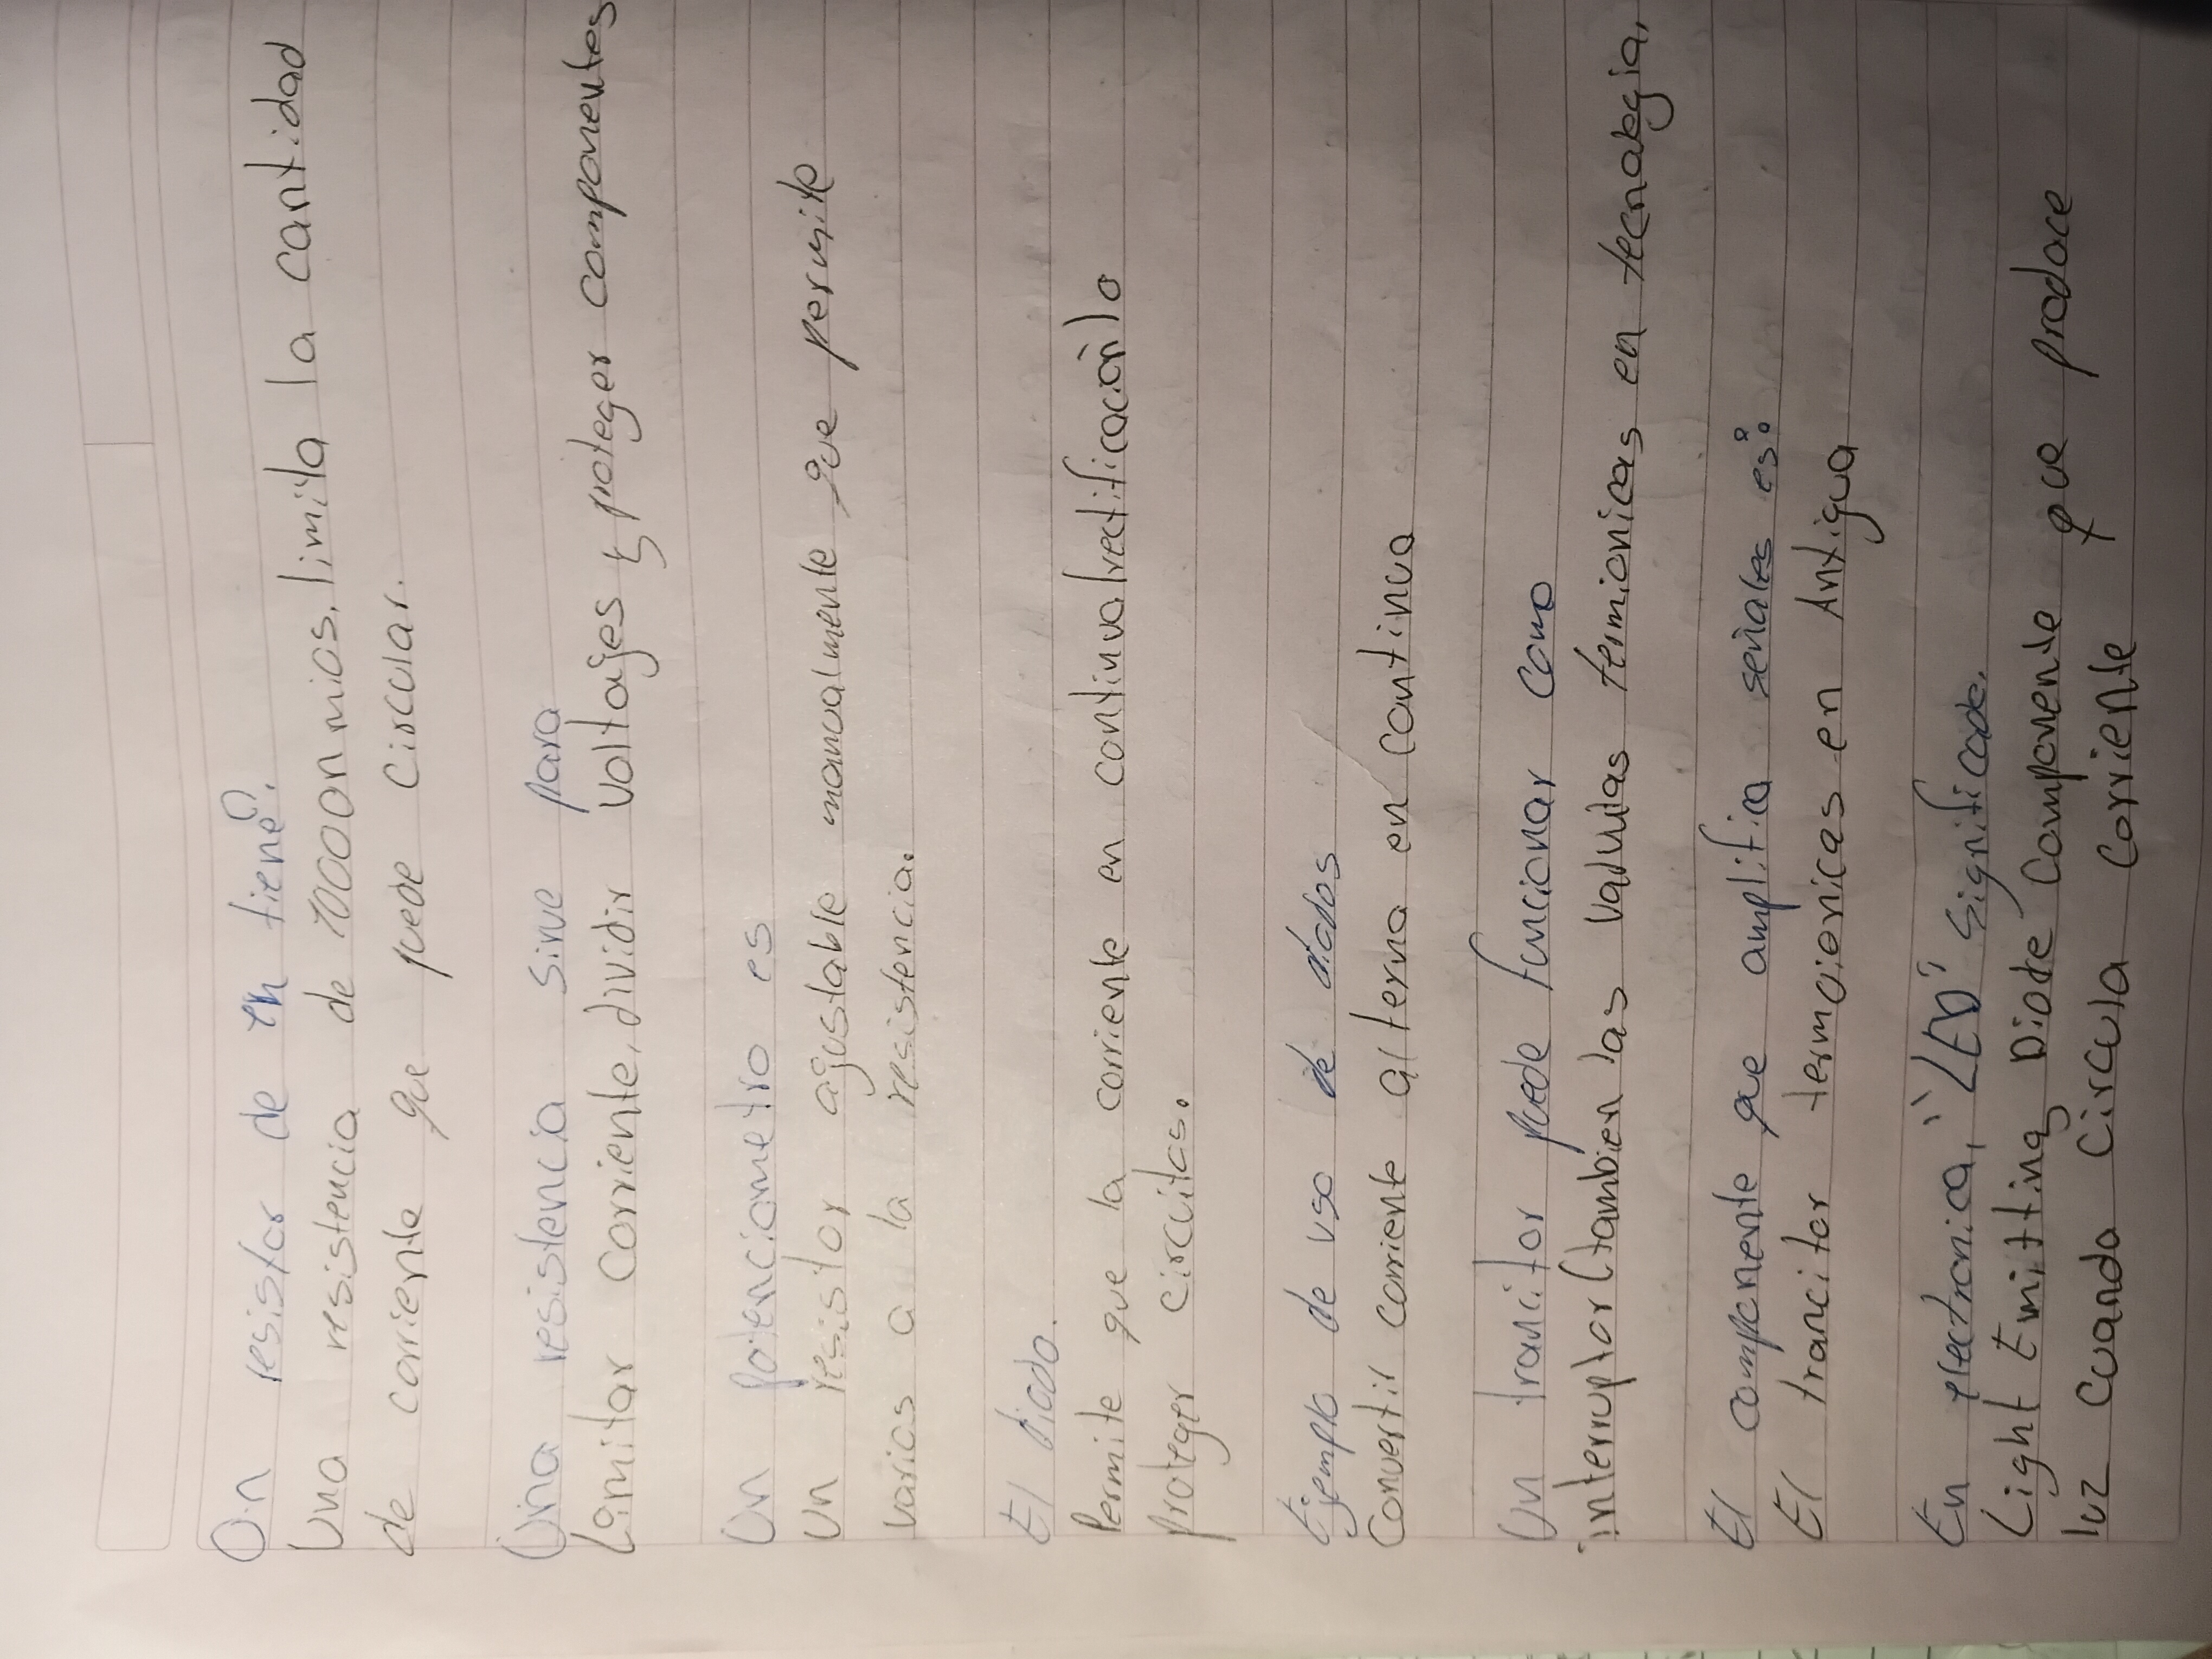 Un resistor de en tiene?.
Una resistencia de 10000nmios. limita la cantidad
de corriente que puede circular.
Una resistencia sirve para
Limitar corriente, dividir voltajes y proteger componentes
Un potenciometro es
Un resistor ajustable manualmente que permite
varias a la resistencia.
El diodo.
Permite que la corriente en continua(rectificación) o
proteger circuitos.
Ejemplo de uso de diodos
Convertir corriente alterna en continua
Un trancitor puede funcionar como
interruptor (tambien las valvulas termionicas en tecnologia.
El componente que amplifica señales es:
El trancitor termoionicas en Antigua
En electronica, "LED" significado.
Light Emitting Diode Componente que produce
luz cuando circula corriente